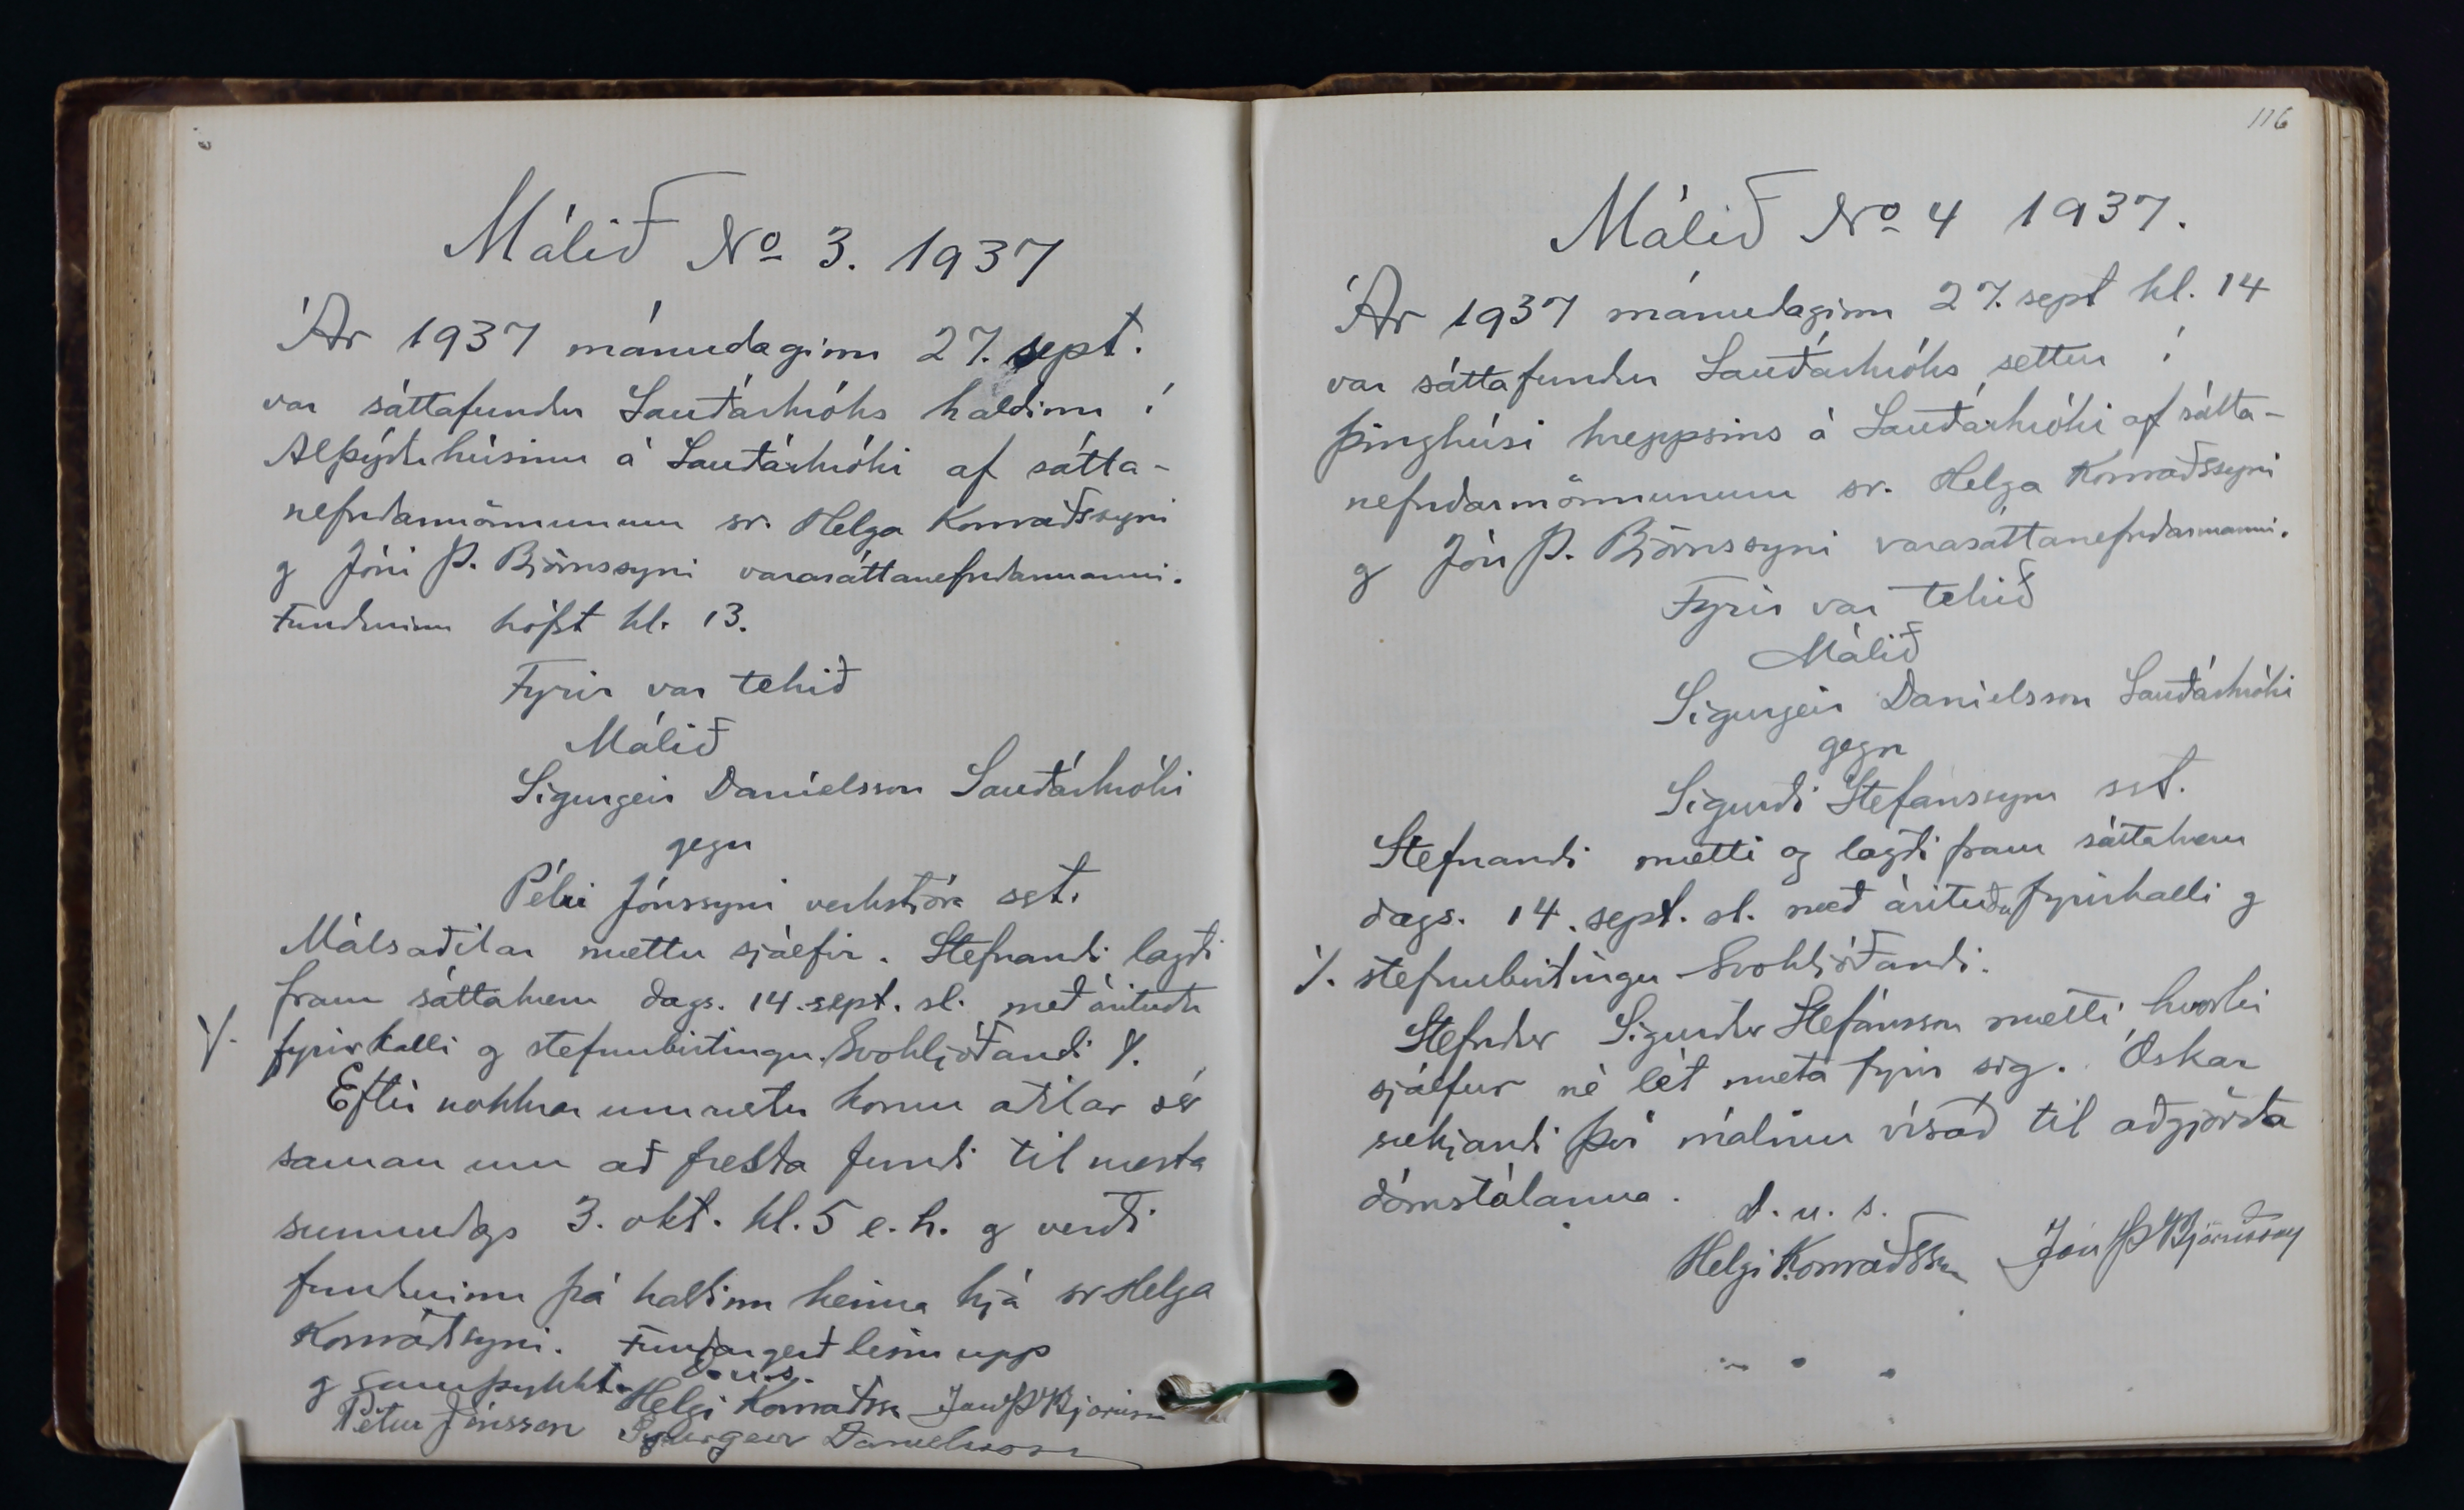 Málið No 3. 1937
Ár 1937 mánudaginn 27. sept.
var sáttafundur Sauðárkróks haldinn í
Alþýðuhúsinu á Sauðárkróki af sátta-
nefndarmönnunum sr. Helga Konráðssyni
og Jóni Þ. Björnssyni varasáttanefndarmanni.
Fundurinn hófst kl. 13.
Fyrir var tekið
Málið
Sigurgeir Daníelsson Sauðárkróki
gegn
Pétri Jónssyni verkstjóra sst.
Málsaðilar mættu sjálfir. Stefnandi lagði
fram sáttakæru dags. 14. sept. sl. með árituðu
./. fyrirkalli og stefnubirtingu. Svohljóðandi ./.
Eftir nokkrar umræður komu aðilar sér
saman um að fresta fundi til næsta
sunnudags 3. okt. kl. 5 e.h. og verði
fundurinn þá haldinn heima hjá sr Helga
Konráðssyni. Fundargerð lesin upp
og samþykkt. d.u.s.
Helgi Konráðsson Jón Þ Björnsson
Pétur Jónsson Sigurgeir Daníelsson
116
Málið No 4 1937.
Ár 1937 mánudaginn 27. sept kl. 14
var sáttafundur Sauðárkróks settur í
þinghúsi hreppsins á Sauðárkróki af sátta-
nefndarmönnunum sr. Helga Konráðssyni
og Jón Þ. Björnssyni varasáttanefndarmanni.
Fyrir var tekið
Málið
Sigurgeir Daníelsson Sauðárkróki
gegn
Sigurði Stefánssyni sst.
Stefnandi mætti og lagði fram sáttakæru
dags. 14. sept. sl. með árituðu fyrirkalli og
./. stefnubirtingu Svohljóðandi.
Stefndur Sigurður Stefánsson mætti hvorki
sjálfur né lét mæta fyrir sig. Óskar
sækjandi því málinu vísað til aðgjörða
dómstólanna. d.u.s.
Helgi Konráðsson Jón Þ Björnsson